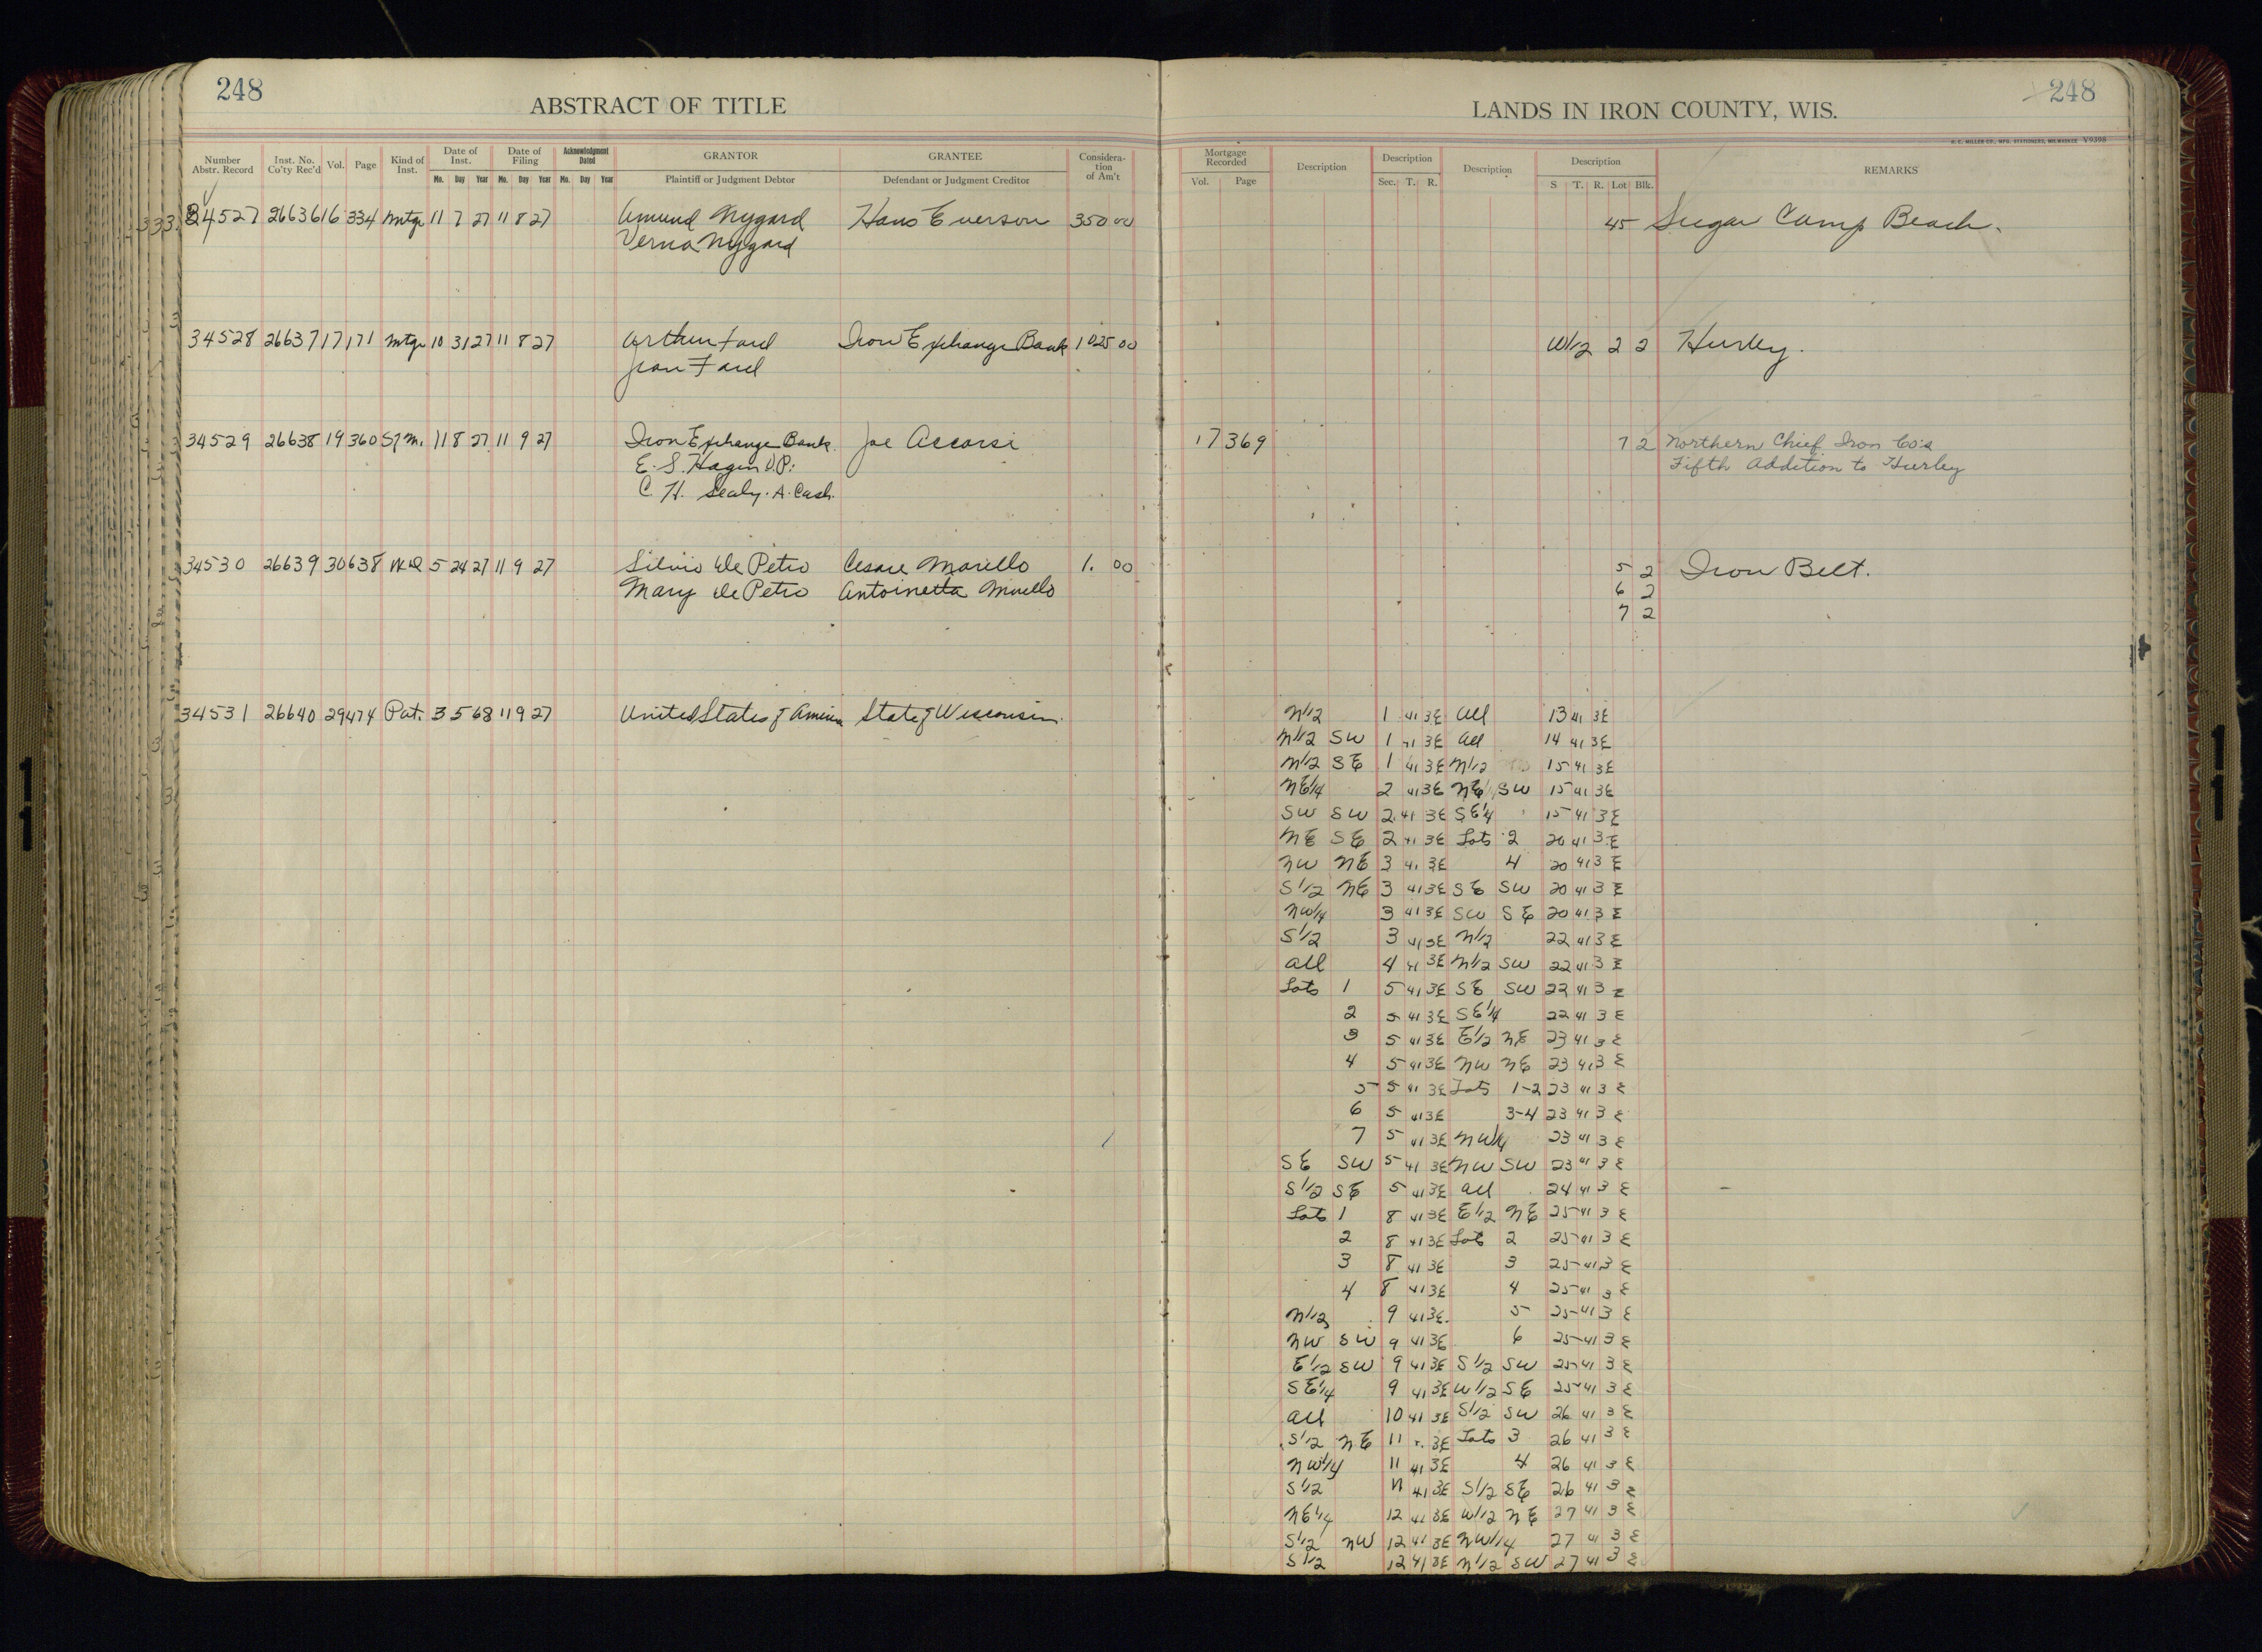 248
ABSTRACT OF TITLE
LANDS IN IRON COUNTY, WIS.
248
H. C. MILLER CO., MFG. STATIONERS, MILWAUKEE V9398
Number Abstr. Record Inst. No. Co'ty Rec'd Vol. Page Kind of Inst. Date of Inst. Mo. Day Year Date of Filing Mo. Day Year Acknowledgment Dated Mo. Day Year GRANTOR Plaintiff or Judgment Debtor GRANTEE Defendant or Judgment Creditor Considera-tion of Am't
Mortgage Recorded Vol. Page Description Description Sec. T. R. Description Description S T. R. Lot Blk. REMARKS
34527 26636 16 334 Mtge 11 7 27 11 8 27 Amund Nygard Hans Everson 350 00 45 Sugar Camp Beach.
Verna Nygard
34528 26637 17 171 Mtge 10 31 27 11 8 27 Arthur Ford Iron Exchange Bank 1025 00 W1/2 2 2 Hurley.
Jean Ford
34529 26638 19 360 S/M. 11 8 27 11 9 27 Iron Exchange Bank Joe Accorsi 17 369 7 2 Northern Chief Iron Co's
E. S. Hagen V.P. Fifth Addition to Hurley
C. H. Sealy. A. Cash.
34530 26639 30 638 WD 5 24 27 11 9 27 Silvio De Petro Cesare Morello 1. 00 5 2 Iron Belt.
Mary De Petro Antoinetta Morello 6 2
7 2
34531 26640 29 474 Pat. 3 5 68 11 9 27 United States of America State of Wisconsin N1/2 1 41 3E All 13 41 3E
N1/2 SW 1 41 3E All 14 41 3E
N1/2 SE 1 41 3E N1/2 15 41 3E
NE1/4 2 41 3E NE SW 15 41 3E
SW SW 2 41 3E SE1/4 15 41 3E
NE SE 2 41 3E Lots 2 20 41 3E
NW NE 3 41 3E 4 20 41 3E
S1/2 NE 3 41 3E SE SW 20 41 3E
NW1/4 3 41 3E SW SE 20 41 3E
S1/2 3 41 3E N1/2 22 41 3E
All 4 41 3E N1/2 SW 22 41 3E
Lots 1 5 41 3E SE SW 22 41 3E
2 5 41 3E SE1/4 22 41 3E
3 5 41 3E E1/2 NE 23 41 3E
4 5 41 3E NW NE 23 41 3E
5 5 41 3E Lots 1-2 23 41 3E
6 5 41 3E 3-4 23 41 3E
7 5 41 3E NW1/4 23 41 3E
SE SW 5 41 3E NW SW 23 41 3E
S1/2 SE 5 41 3E All 24 41 3E
Lots 1 8 41 3E E1/2 NE 25 41 3E
2 8 41 3E Lots 2 25 41 3E
3 8 41 3E 3 25 41 3E
4 8 41 3E 4 25 41 3E
N1/2 9 41 3E 5 25 41 3E
NW SW 9 41 3E 6 25 41 3E
E1/2 SW 9 41 3E S1/2 SW 25 41 3E
SE1/4 9 41 3E W1/2 SE 25 41 3E
All 10 41 3E S1/2 SW 26 41 3E
S1/2 NE 11 3E Lots 3 26 41 3E
NW1/4 11 41 3E 4 26 41 3E
S1/2 11 41 3E S1/2 SE 26 41 3E
NE1/4 12 41 3E W1/2 NE 27 41 3E
S1/2 NW 12 41 3E NW1/4 27 41 3E
S1/2 12 41 3E N1/2 SW 27 41 3E